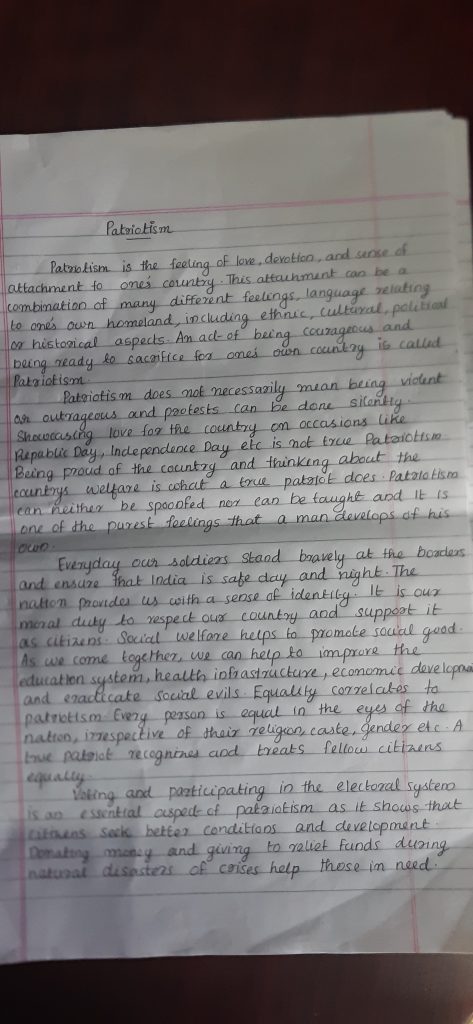 Patriotism
Patriotism is the feeling of love, devotion, and sense of
attachment to one's country. This attachment can be a
combination of many different feelings, language relating
to one's own homeland, including ethnic, cultural, political
or historical aspects. An act of being courageous and
being ready to sacrifice for one's own country is called
Patriotism.
Patriotism does not necessarily mean being violent
or outrageous and protests can be done silently.
Showcasing love for the country on occasions like
Republic Day, Independence Day etc is not true Patriotism
Being proud of the country and thinking about the
countrys welfare is what a true patriot does. Patriotism
can neither be spoonfed nor can be taught and it is
one of the purest feelings that a man develops of his
own.
Everyday our soldiers stand bravely at the borders
and ensure that India is safe day and night. The
nation provides us with a sense of identity. It is our
moral duty to respect our country and support it
as citizens. Social welfare helps to promote social good.
As we come together, we can help to improve the
education system, health infrastructure, economic
and eradicate social evils. Equality correlates to
patriotism. Every person is equal in the eyes of the
nation, irrespective of their religion, caste, gender etc. A
true patriot recognizes and treats fellow citizens
equally.
Voting and participating in the electoral system
is an essential aspect of patriotism as it shows that
citizens seek better conditions and development.
Donating money and giving to relief funds during
natural disasters of crises help those in need.